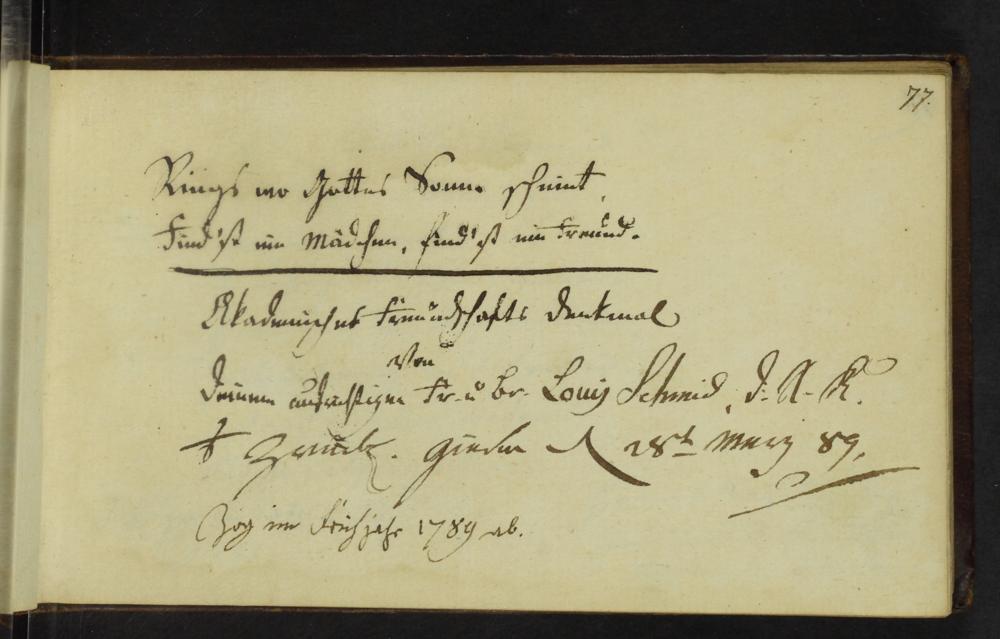 77.
Rings wo Gottes Sonne scheint
Find'st ein Mädchen, find'st ein Freund.
Akademisches Freundschafts Denkmal
Von
Deinem aufrichtigen Fr. u Br. Louis Schmid, d. R.
Giesen d 28t Merz 89.
Zog im Frühjahr 1789 ab.